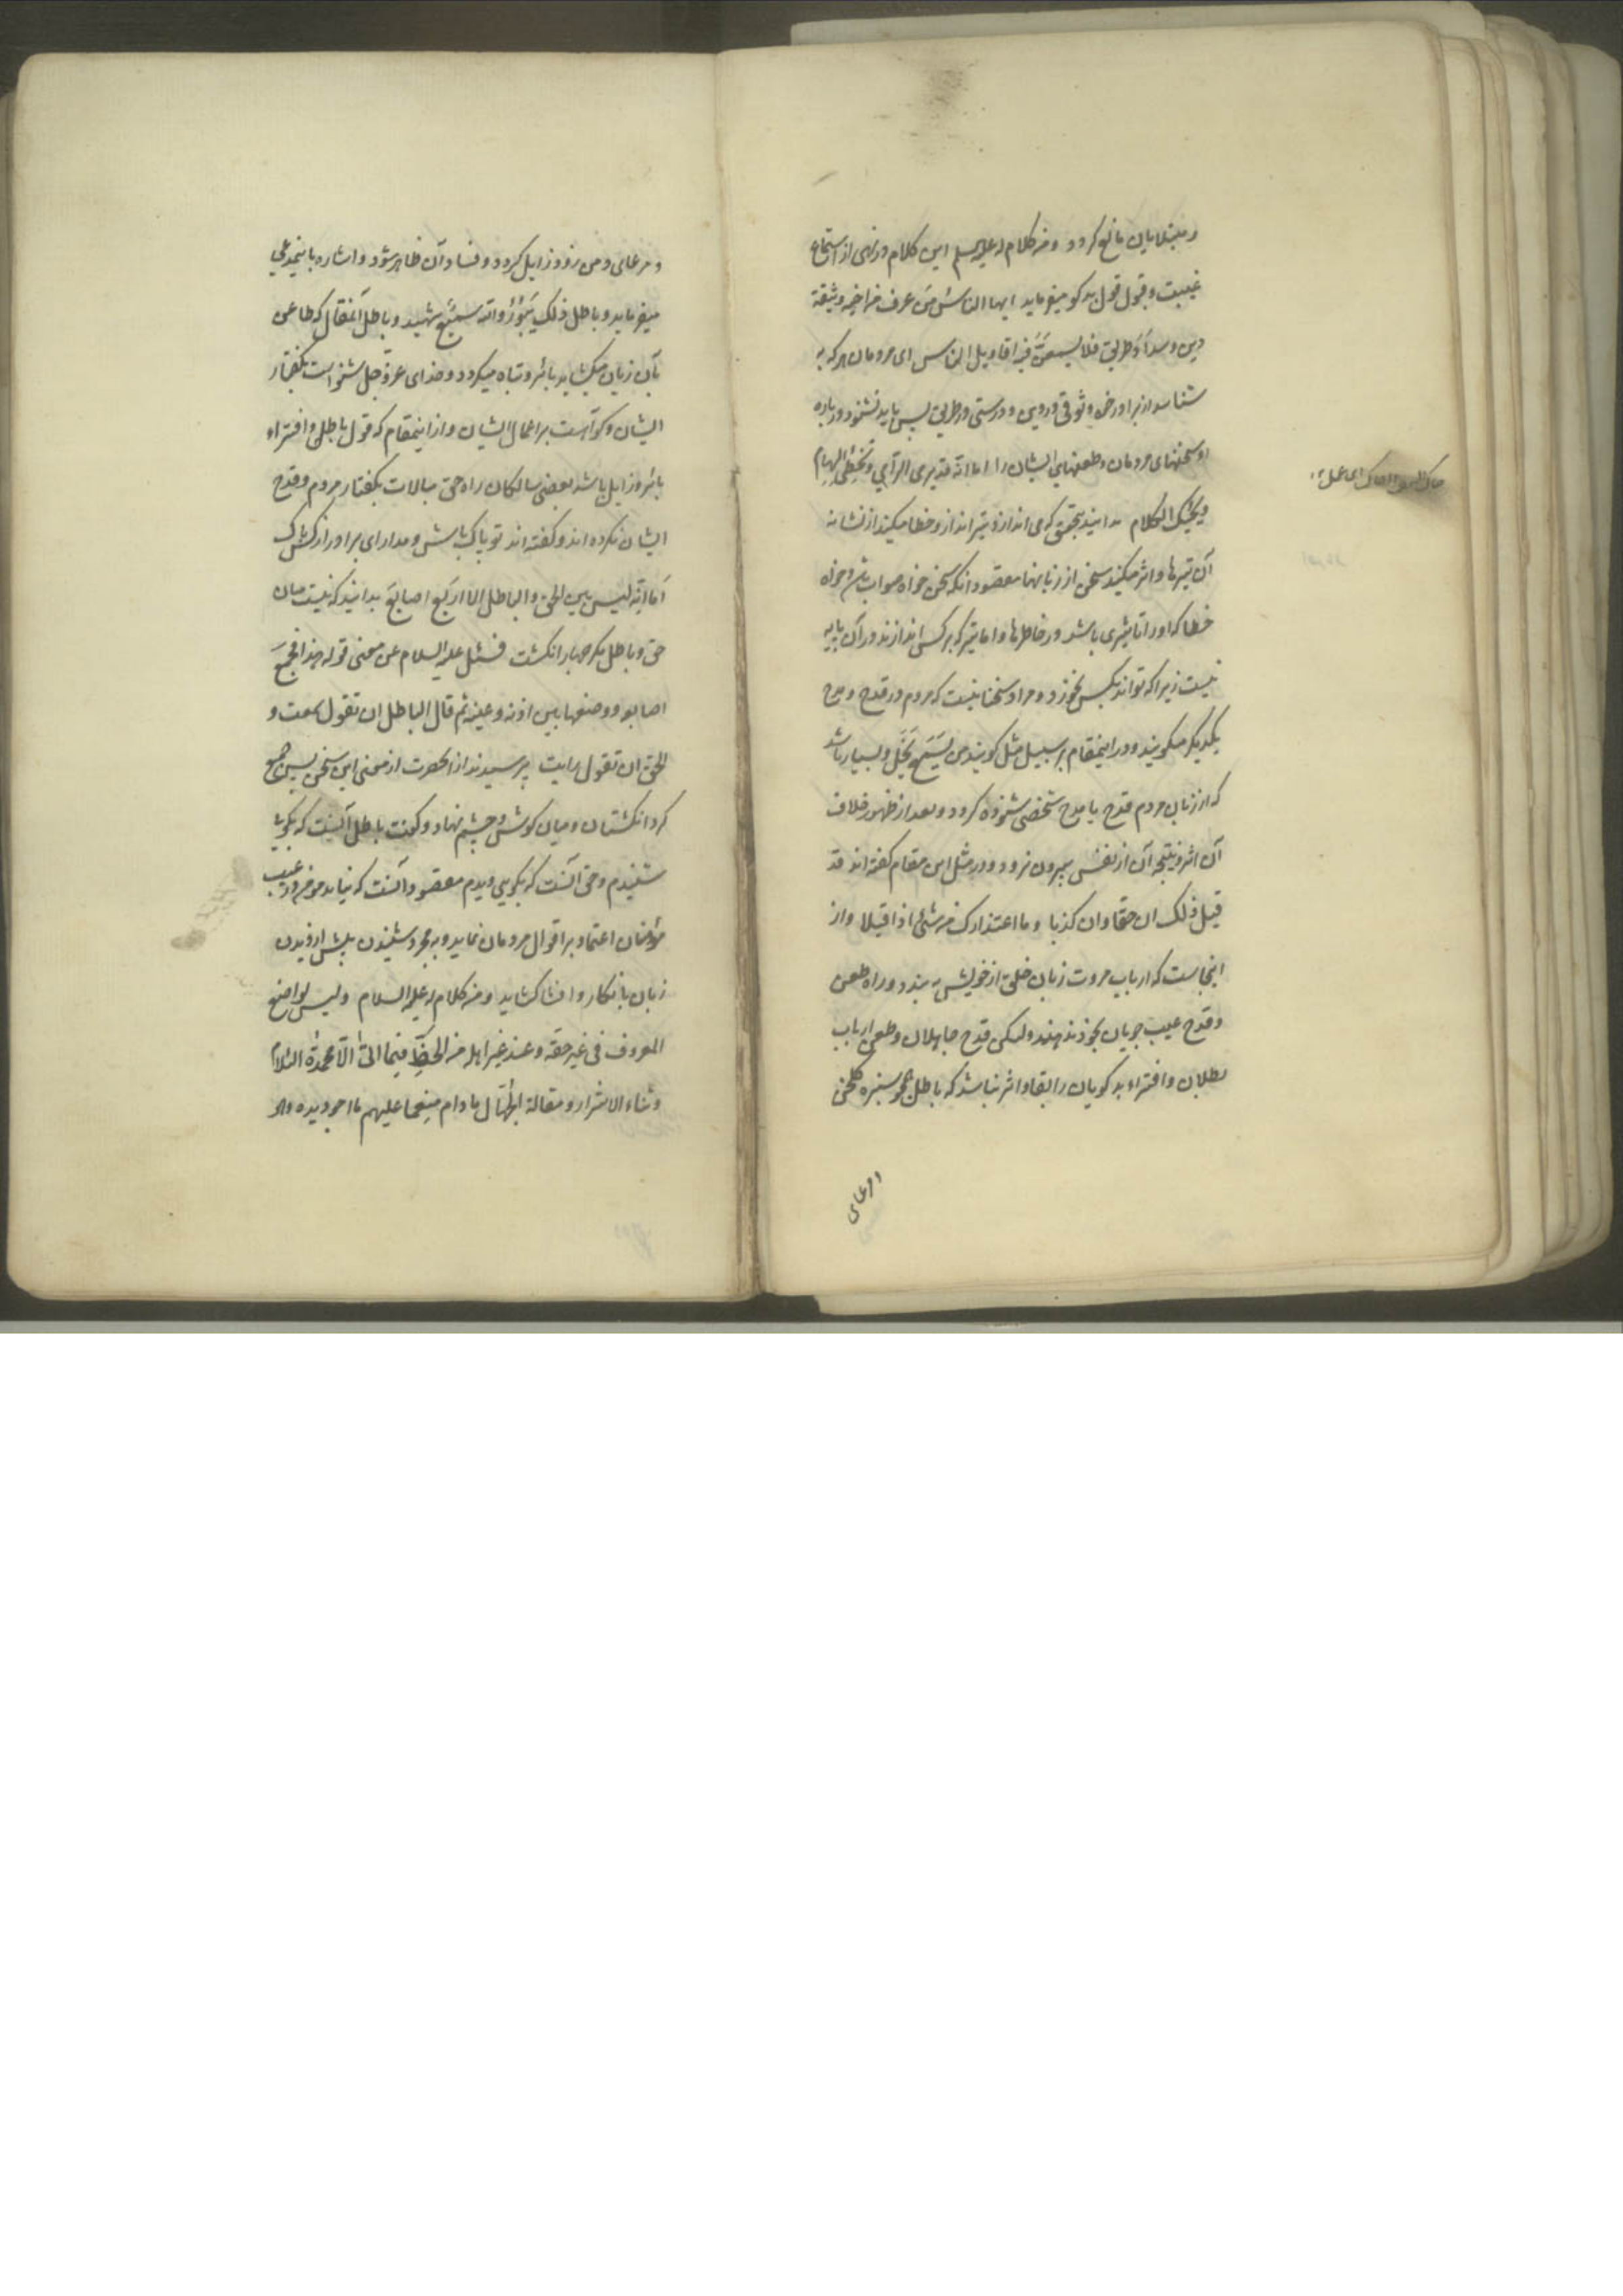 و مبتلایان مانع کردد ومن کلام له علیه السلم این کلام در نهی از استماع
غیبت و قبول قول بدکو میفرماید ایها الناس من عرف من اخیه وثیقة
دین وسداد طریق فلا یسمعنّ فیه اقاویل الناس ای مردمان هر که به
شناسد از برادر خود وثوقی در دین و درستی در طریق پس باید نشنود در باره
او سخنهای مردمان و طعنهای ایشان را اما انه قد یرمی الرامی وتخطی السهام
ویحیک الکلام بدانید بتحقیق که می اندازد تیرانداز و خطا میکند از نشانه
آن تیرها و اثر میکند سخن از زبانها مقصود آنکه سخن خواه صواب باشد و خواه
خطا که او را تاثیری باشد در خاطرها و اما تیر که بر کسی اندازند در آن پایه
نیست زیرا که تواند بکس نخورد و مراد سخنانیست که مردم در قدح و مدح
یکدیکر میکویند و در اینمقام بر سبیل مثل کویند من یسمع یخل و بسیار باشد
که از زبان مردم قدح یا مدح شخصی شنوده کردد و بعد از ظهور خلاف
آن اثر و نتیجه آن از نفس بیرون نرود و در مثل این مقام کفته اند قد
قیل ذلک ان حقا وان کذبا وما اعتذارک من شئ اذا قیلا و از
اینجاست که ارباب مروت زبان خلق از خویش به بندد و راه طعن
و قدح عیب جویان بخود ندهند ولیکن قدح جاهلان و طعن ارباب
بطلان و افتراء بدکویان را بقا و اثر نباشد که باطل همچو سبزه کلخن
و مرعای دمن زود زایل کردد و فساد آن ظاهر شود و اشاره باینمعنی
میفرماید وباطل ذلک یبور والله سمیع شهید و باطل آنمقال که طاعن
بآن زبان میکشاید بائر و تباه میکردد و خدای عز و جل شنواست بکفتار
ایشان و کواهست بر اعمال ایشان و از اینمقام که قول باطل و افتراء
بائر و زایل باشد بعضی سالکان راه حق مبالات بکفتار مردم و قدح
ایشان نکرده اند و کفته اند تو پاک باش و مدار ای برادر از کس باک
اما انه لیس بین الحق والباطل الا اربع اصابع بدانید که نیست میان
حق و باطل مکر چهار انکشت فسئل علیه السلام عن معنی قوله هذا فجمع
اصابعه ووضعها بین اذنه وعینه ثم قال الباطل ان تقول سمعت و
الحق ان تقول رایت پرسیدند از آنحضرت از معنی این سخن پس جمع
کرد انکشتان و میان کوش و چشم نهاد و کفت باطل آنست که بکویی
شنیدم و حق آنست که بکویی دیدم مقصود آنست که نباید مومن در عیب
مؤمنان اعتماد بر اقوال مردمان نماید و به مجرد شنیدن پیش از دیدن
زبان بانکار و افشا کشاید ومن کلام له علیه السلام ولیس لواضع
المعروف فی غیر حقه وعند غیر اهله من الحظ فیما اتی الا محمدة اللئام
وثناء الاشرار ومقالة الجهال مادام منعما علیهم ما اجود یده وهو
مرعای